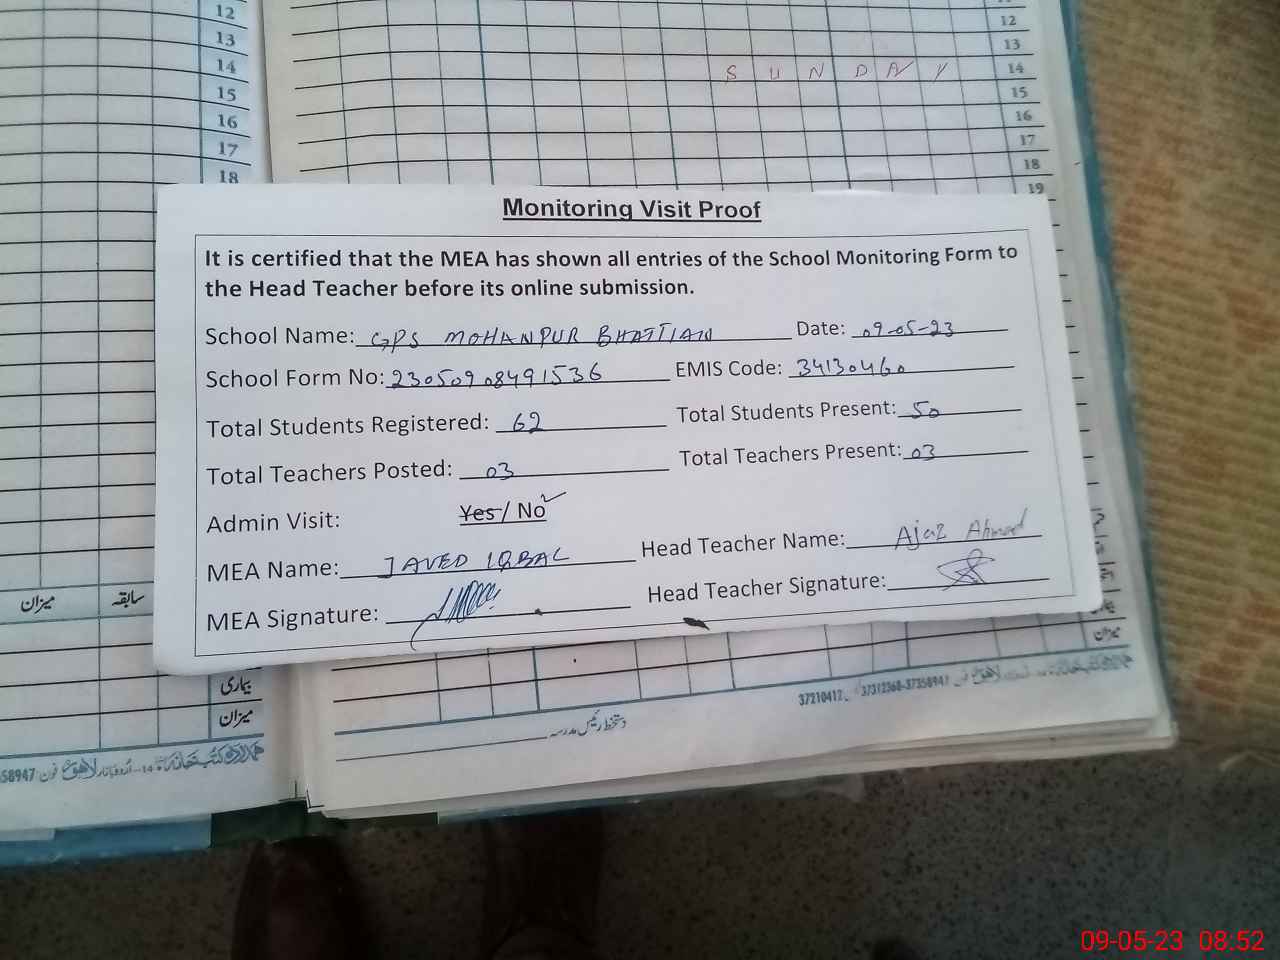 12
13
14
15
16
17
18
12
13
S U N D A Y 14
15
16
17
18
19
Monitoring Visit Proof
It is certified that the MEA has shown all entries of the School Monitoring Form to
the Head Teacher before its online submission.
School Name: GPS MOHANPUR BHATTIAN Date: 09-05-23
School Form No: 23050908491536 EMIS Code: 34130460
Total Students Registered: 62 Total Students Present: 50
Total Teachers Posted: 03 Total Teachers Present: 03
Admin Visit: Yes / No
MEA Name: JAVED IQBAL Head Teacher Name: Ajaz Ahmad
MEA Signature: Head Teacher Signature:
میزان سابقہ
بیاری
میزان
میزان
دستخط رئیس مدرسہ
37210412 37312368-37358947 فون لاہور
58947 فون لاہور اردو بازار 14- کتب خانہ
09-05-23 08:52